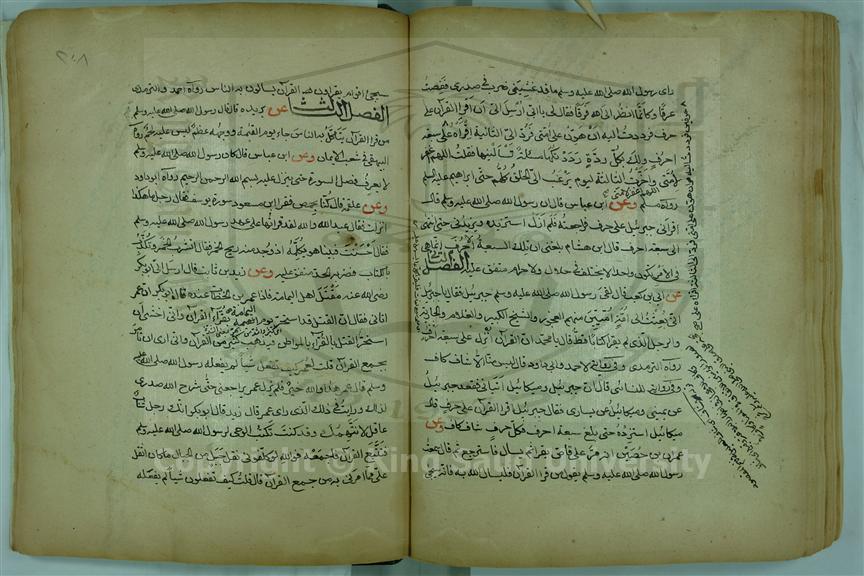 راى رسول الله صلى الله عليه وسلم ما قد غشيني ضرب في صدري ففضت
عرقا وكانما انظر الى الله فرقا فقال لي يا ابي ارسل الي ان اقرا القران على
حرف فرددت اليه ان هون على امتي فرد الي الثانية اقراه على سبعة
احرف ولك بكل ردة رددتكها مسئلة تسألنيها فقلت اللهم اغفر
لامتي واخرت الثالثة ليوم يرغب الي الخلق كلهم حتى ابراهيم عليه السلم
رواه مسلم وعن ابن عباس قال ان رسول الله صلى الله عليه وسلم قال
اقراني جبريل على حرف فراجعته فلم ازل استزيده ويزيدني حتى انتهى
الى سبعة احرف قال ابن شهاب بلغني ان تلك السبعة الاحرف انما هي
في الامر يكون واحدا لا يختلف في حلال ولا حرام متفق عليه الفصل الثاني
عن ابي بن كعب قال لقي رسول الله صلى الله عليه وسلم جبريل فقال يا جبريل
اني بعثت الى امة اميين منهم العجوز والشيخ الكبير والغلام والجارية
والرجل الذي لم يقرا كتابا قط قال يا محمد ان القران انزل على سبعة احرف
رواه الترمذي وفي رواية لاحمد وابي داود قال ليس منها الا شاف كاف
وفي رواية للنسائي قال ان جبريل وميكائيل اتياني فقعد جبريل
عن يميني وميكائيل عن يساري فقال جبريل اقرا القران على حرف قال
ميكائيل استزده حتى بلغ سبعة احرف فكل حرف شاف كاف وعن
عمران بن حصين انه مر على قاص يقرا ثم يسال فاسترجع ثم قال سمعت
رسول الله صلى الله عليه وسلم يقول من قرا القران فليسال الله به فانه سيجي
٢٠٨
سيجئ اقوام يقراون القران يسالون به الناس رواه احمد والترمذي
الفصل الثالث عن بريدة قال قال رسول الله صلى الله عليه وسلم
من قرا القران يتاكل به الناس جاء يوم القيمة ووجهه عظم ليس عليه لحم رواه
البيهقي في شعب الايمان وعن ابن عباس قال كان رسول الله صلى الله عليه وسلم
لا يعرف فصل السورة حتى ينزل عليه بسم الله الرحمن الرحيم رواه ابو داود
وعن علقمة قال كنا بحمص فقرا ابن مسعود سورة يوسف فقال رجل ما هكذا
انزلت فقال عبد الله والله لقد قراتها على عهد رسول الله صلى الله عليه وسلم
فقال احسنت فبينا هو يكلمه اذ وجد منه ريح الخمر فقال اتشرب الخمر وتكذب
بالكتاب فضربه الحد متفق عليه وعن زيد بن ثابت قال ارسل الي ابو بكر
رضي الله عنه مقتل اهل اليمامة فاذا عمر بن الخطاب عنده قال ابو بكر ان عمر
اتاني فقال ان القتل قد استحر يوم اليمامة بقراء القران واني اخشى ان
استحر القتل بالقراء بالمواطن فيذهب كثير من القران واني ارى ان تامر
بجمع القران قلت لعمر كيف تفعل شيا لم يفعله رسول الله صلى الله عليه
وسلم قال عمر هذا والله خير فلم يزل عمر يراجعني حتى شرح الله صدري
لذلك ورايت في ذلك الذي راى عمر قال زيد قال ابو بكر انك رجل شاب
عاقل لا نتهمك وقد كنت تكتب الوحي لرسول الله صلى الله عليه وسلم
فتتبع القران فاجمعه فوالله لو كلفوني نقل جبل من الجبال ما كان اثقل
علي مما امرني به من جمع القران قال قلت كيف تفعلون شيا لم يفعله
Copyright © King Saud University